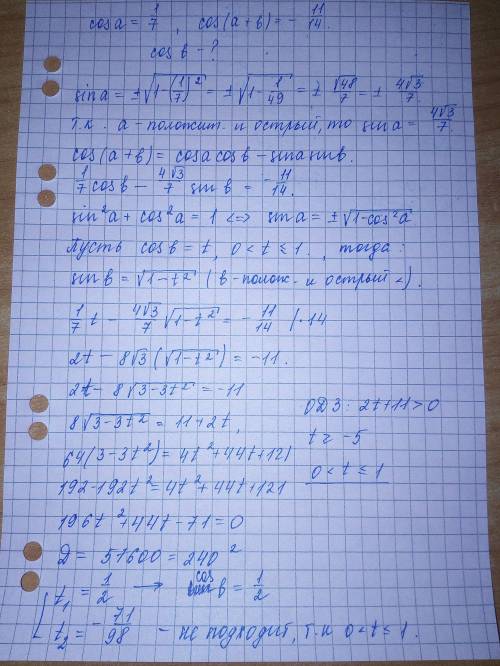 cos a = 1/7, cos(a+в) = - 11/14.
cos в - ?
sin a = ±√(1-(1/7)²) = ±√(1-1/49) = ± √48/7 = ± 4√3/7.
т.к. а - положит. и острый, то sin a = 4√3/7
cos(a+в) = cosa cosв - sina sinв.
1/7 cosв - 4√3/7 sin в = - 11/14.
sin²a + cos²a = 1 <=> sin a = ±√(1-cos²a)
Пусть cos в = t, 0 < t ≤ 1., тогда:
sin в = √(1-t²) (в - полож. и острый <).
1/7 t - 4√3/7 √(1-t²) = - 11/14 /·14
2t - 8√3 (√(1-t²)) = -11.
2t - 8√(3-3t²) = -11
8√(3-3t²) = 11+2t,
64(3-3t²) = 4t²+44t+121
192-192t² = 4t²+44t+121
196t²+44t-71=0
D = 57600 = 240²
t₁ = 1/2 → cos в = 1/2
t₂ = - 71/98 - не подходит, т.к 0<t≤1.
ОДЗ: 2t+11>0
t ≥ -5
0 < t ≤ 1